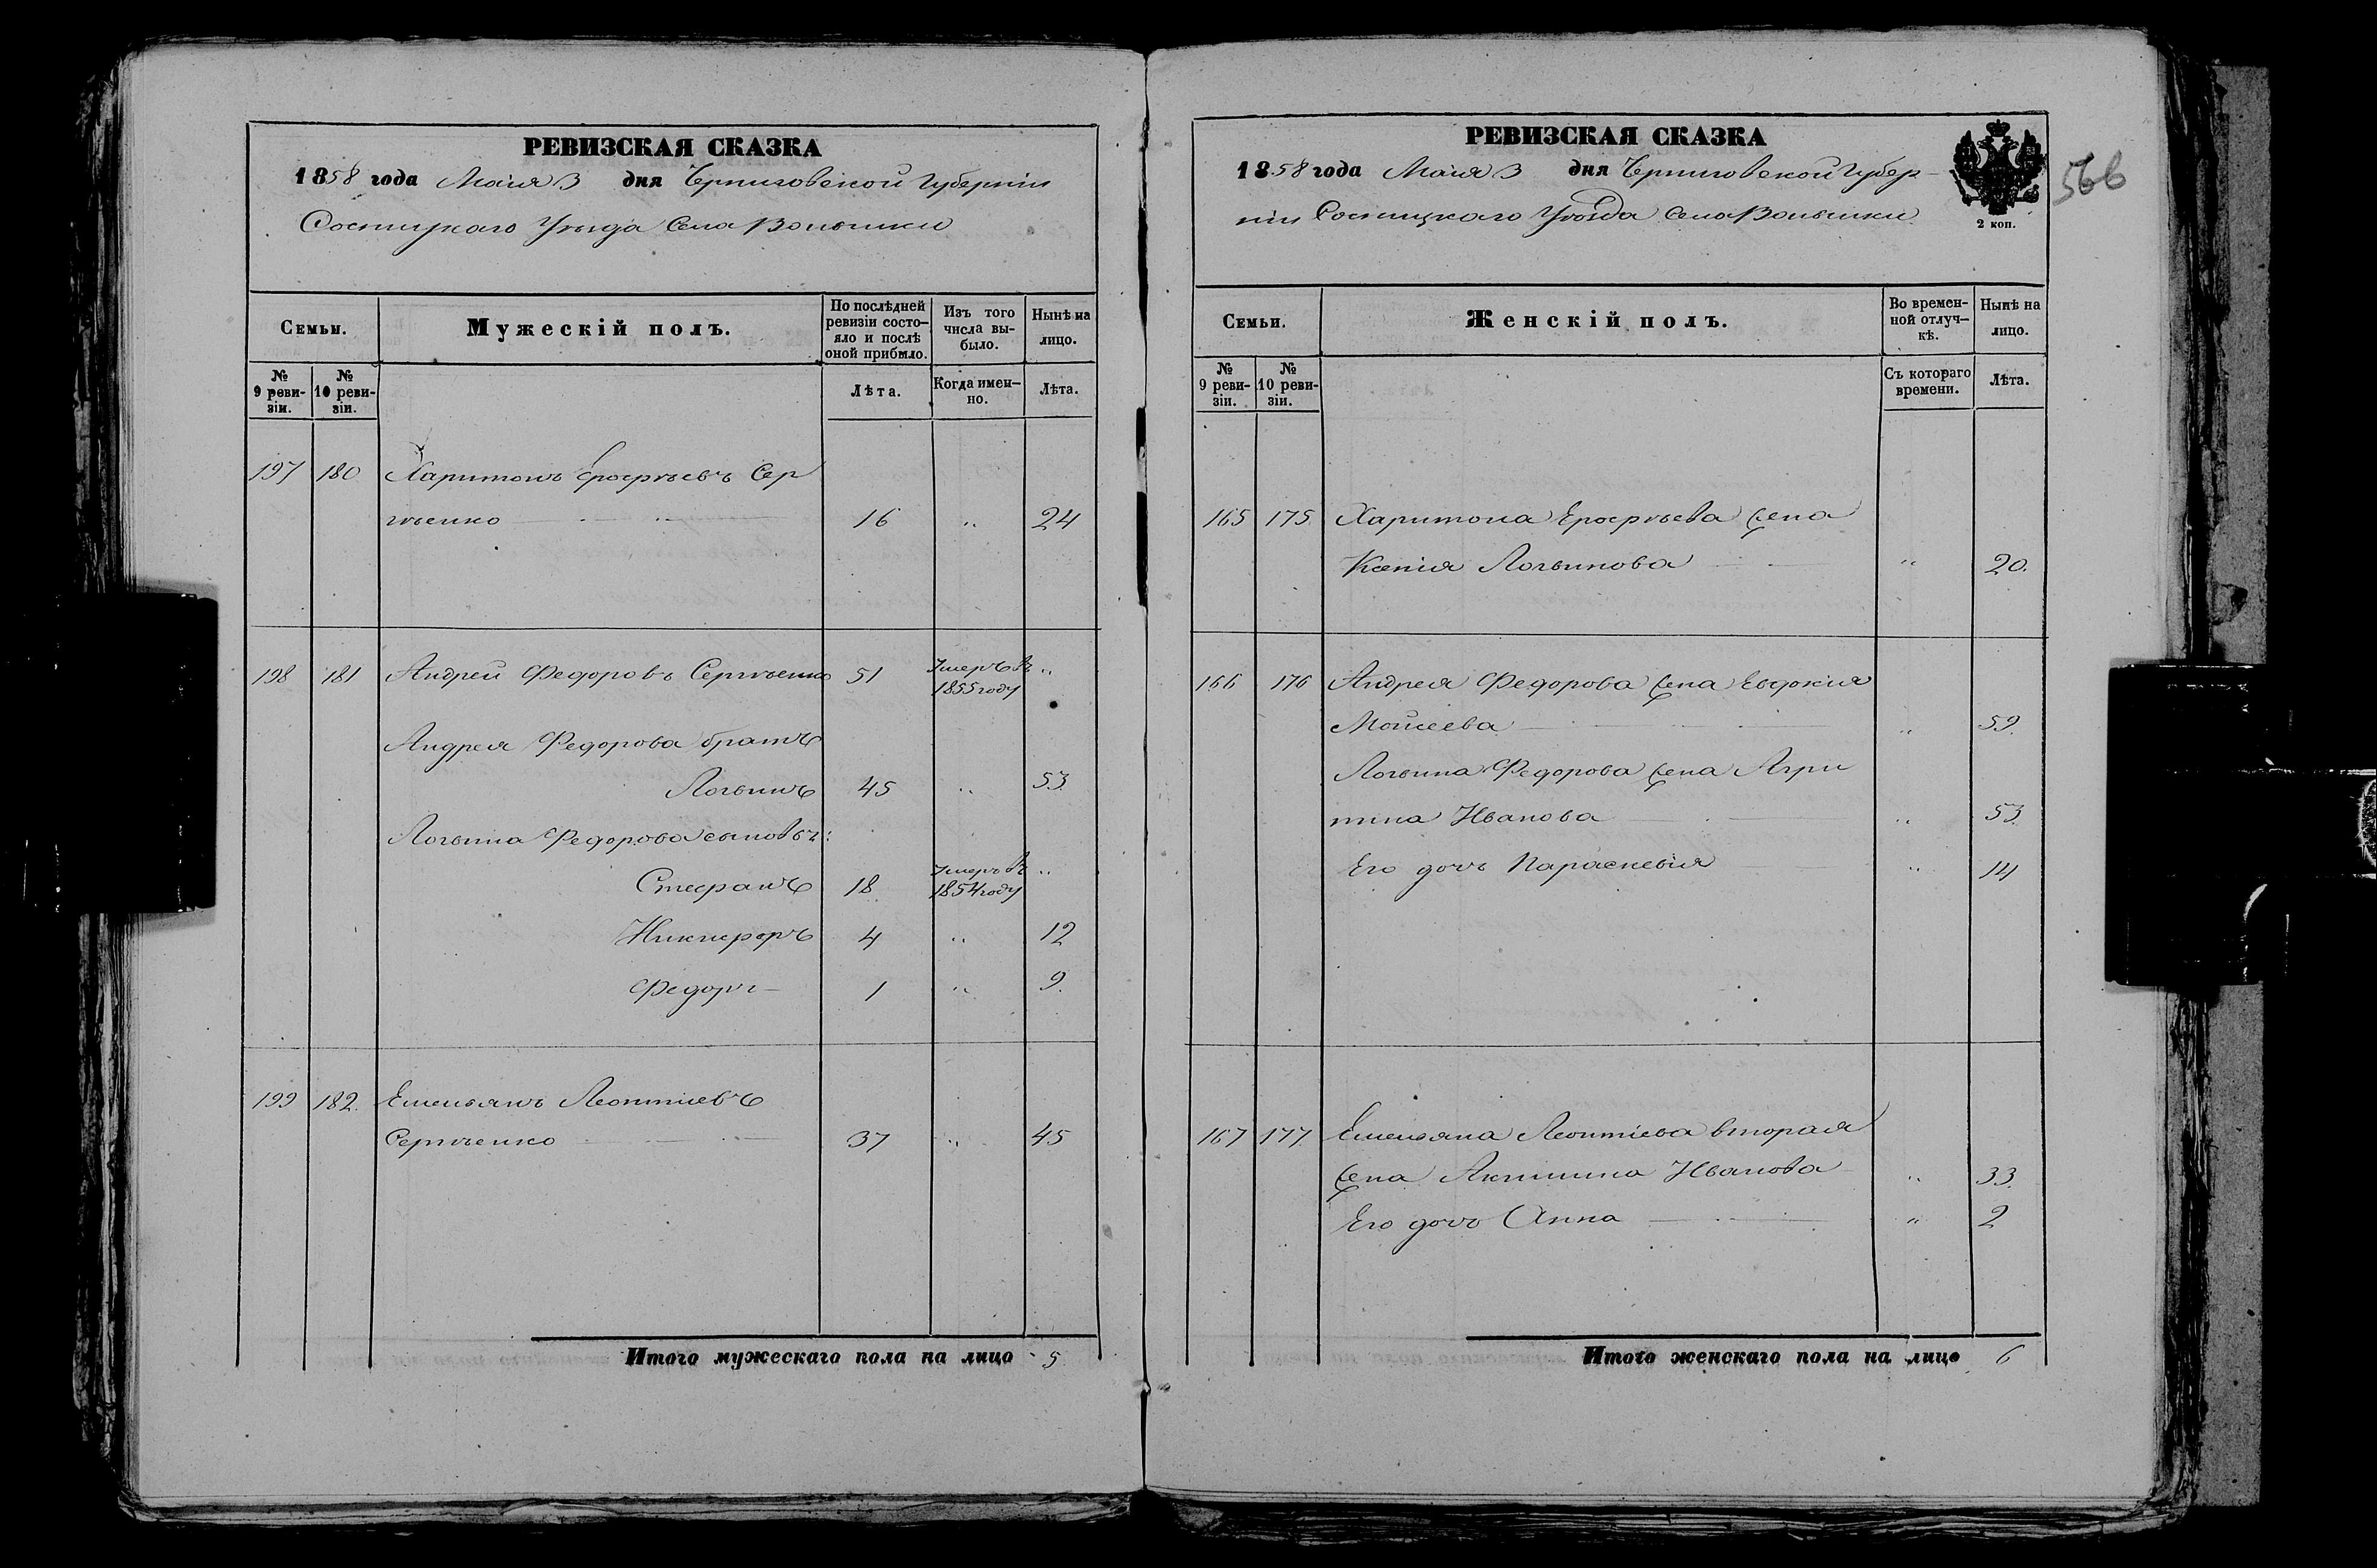 РЕВИЗСКАЯ СКАЗКА
1858 года Маія 3 дня Черниговской Губерніи
Сосницкаго Уѣзда Села Волынки
Семьи.
Мужескій полъ.
По послѣдней ревизіи состо-
яло и послѣ оной прибыло.
Изъ того числа вы-
было.
Нынѣ на лицо.
№ 9 реви-
зіи.
№ 10 реви-
зіи.
Лѣта.
Когда имен-
но.
Лѣта.
197 180 Харитонъ Ерофѣевъ Сер
гѣенко 16 „ 24
198 181 Андрей Федоровъ Сергѣенко 51 Умеръ въ „
1855 году
Андрея Федорова братъ
Логвинъ 45 „ 53.
Логвина Федорова сыновья:
Стефанъ 18 Умеръ въ „
1854 году
Никифоръ 4 „ 12
Федоръ 1 „ 9.
199 182. Емельянъ Леонтіевъ
Сергѣенко 37 „ 45
Итого мужескаго пола на лицо 5
РЕВИЗСКАЯ СКАЗКА
1858 года Маія 3 дня Черниговской Губер-
ніи Сосницкаго Уѣзда Села Волынки
2 коп.
566
Семьи.
Женскій полъ.
Во времен-
ной отлуч-
кѣ.
Нынѣ на лицо.
№ 9 реви-
зіи.
№ 10 реви-
зіи.
Съ котораго времени.
Лѣта.
165 175 Харитона Ерофѣева жена
Ксенія Логвинова „ 20.
166 176 Андрея Федорова жена Евдокія
Моисеева „ 59.
Логвина Федорова жена Агри
пина Иванова „ 53.
Его дочь Параскевія „ 14
167 177. Емельяна Леонтіева вторая
жена Акилина Иванова „ 33.
Его дочь Анна „ 2
Итого женскаго пола на лицо 6